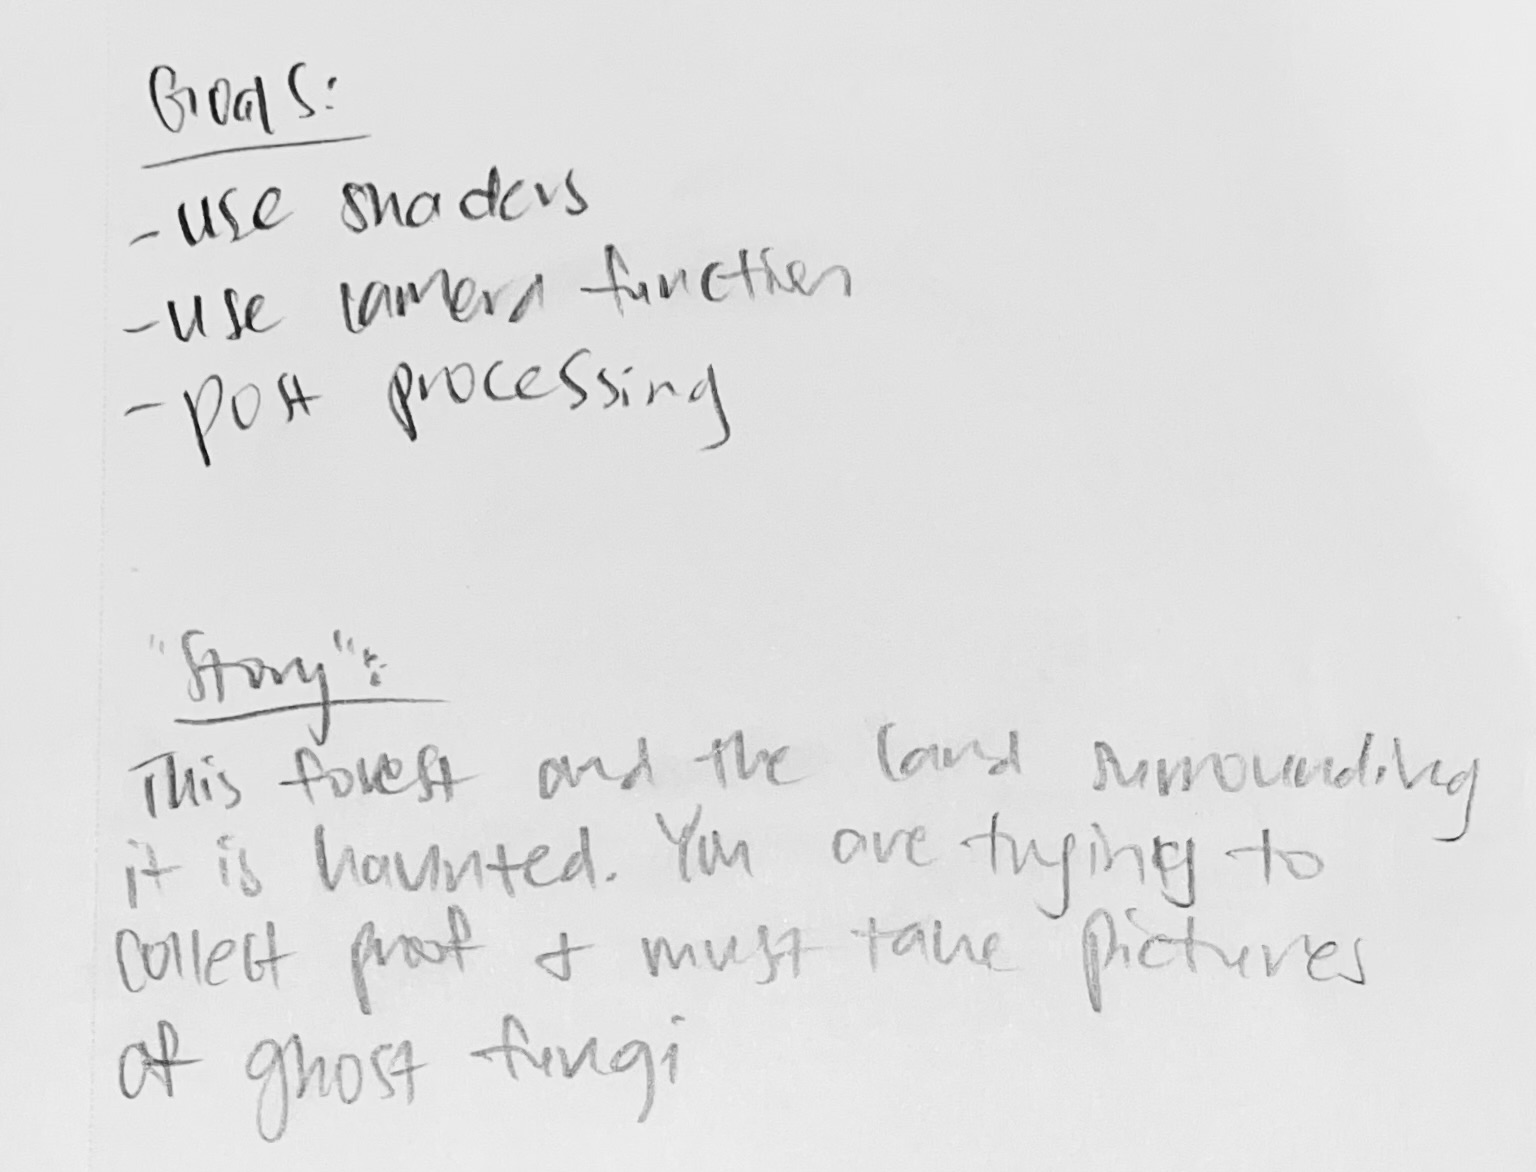 Goals:
- use shaders
- use camera function
- post processing
"Story":
This forest and the land surrounding
it is haunted. You are trying to
collect proof & must take pictures
of ghost fungi